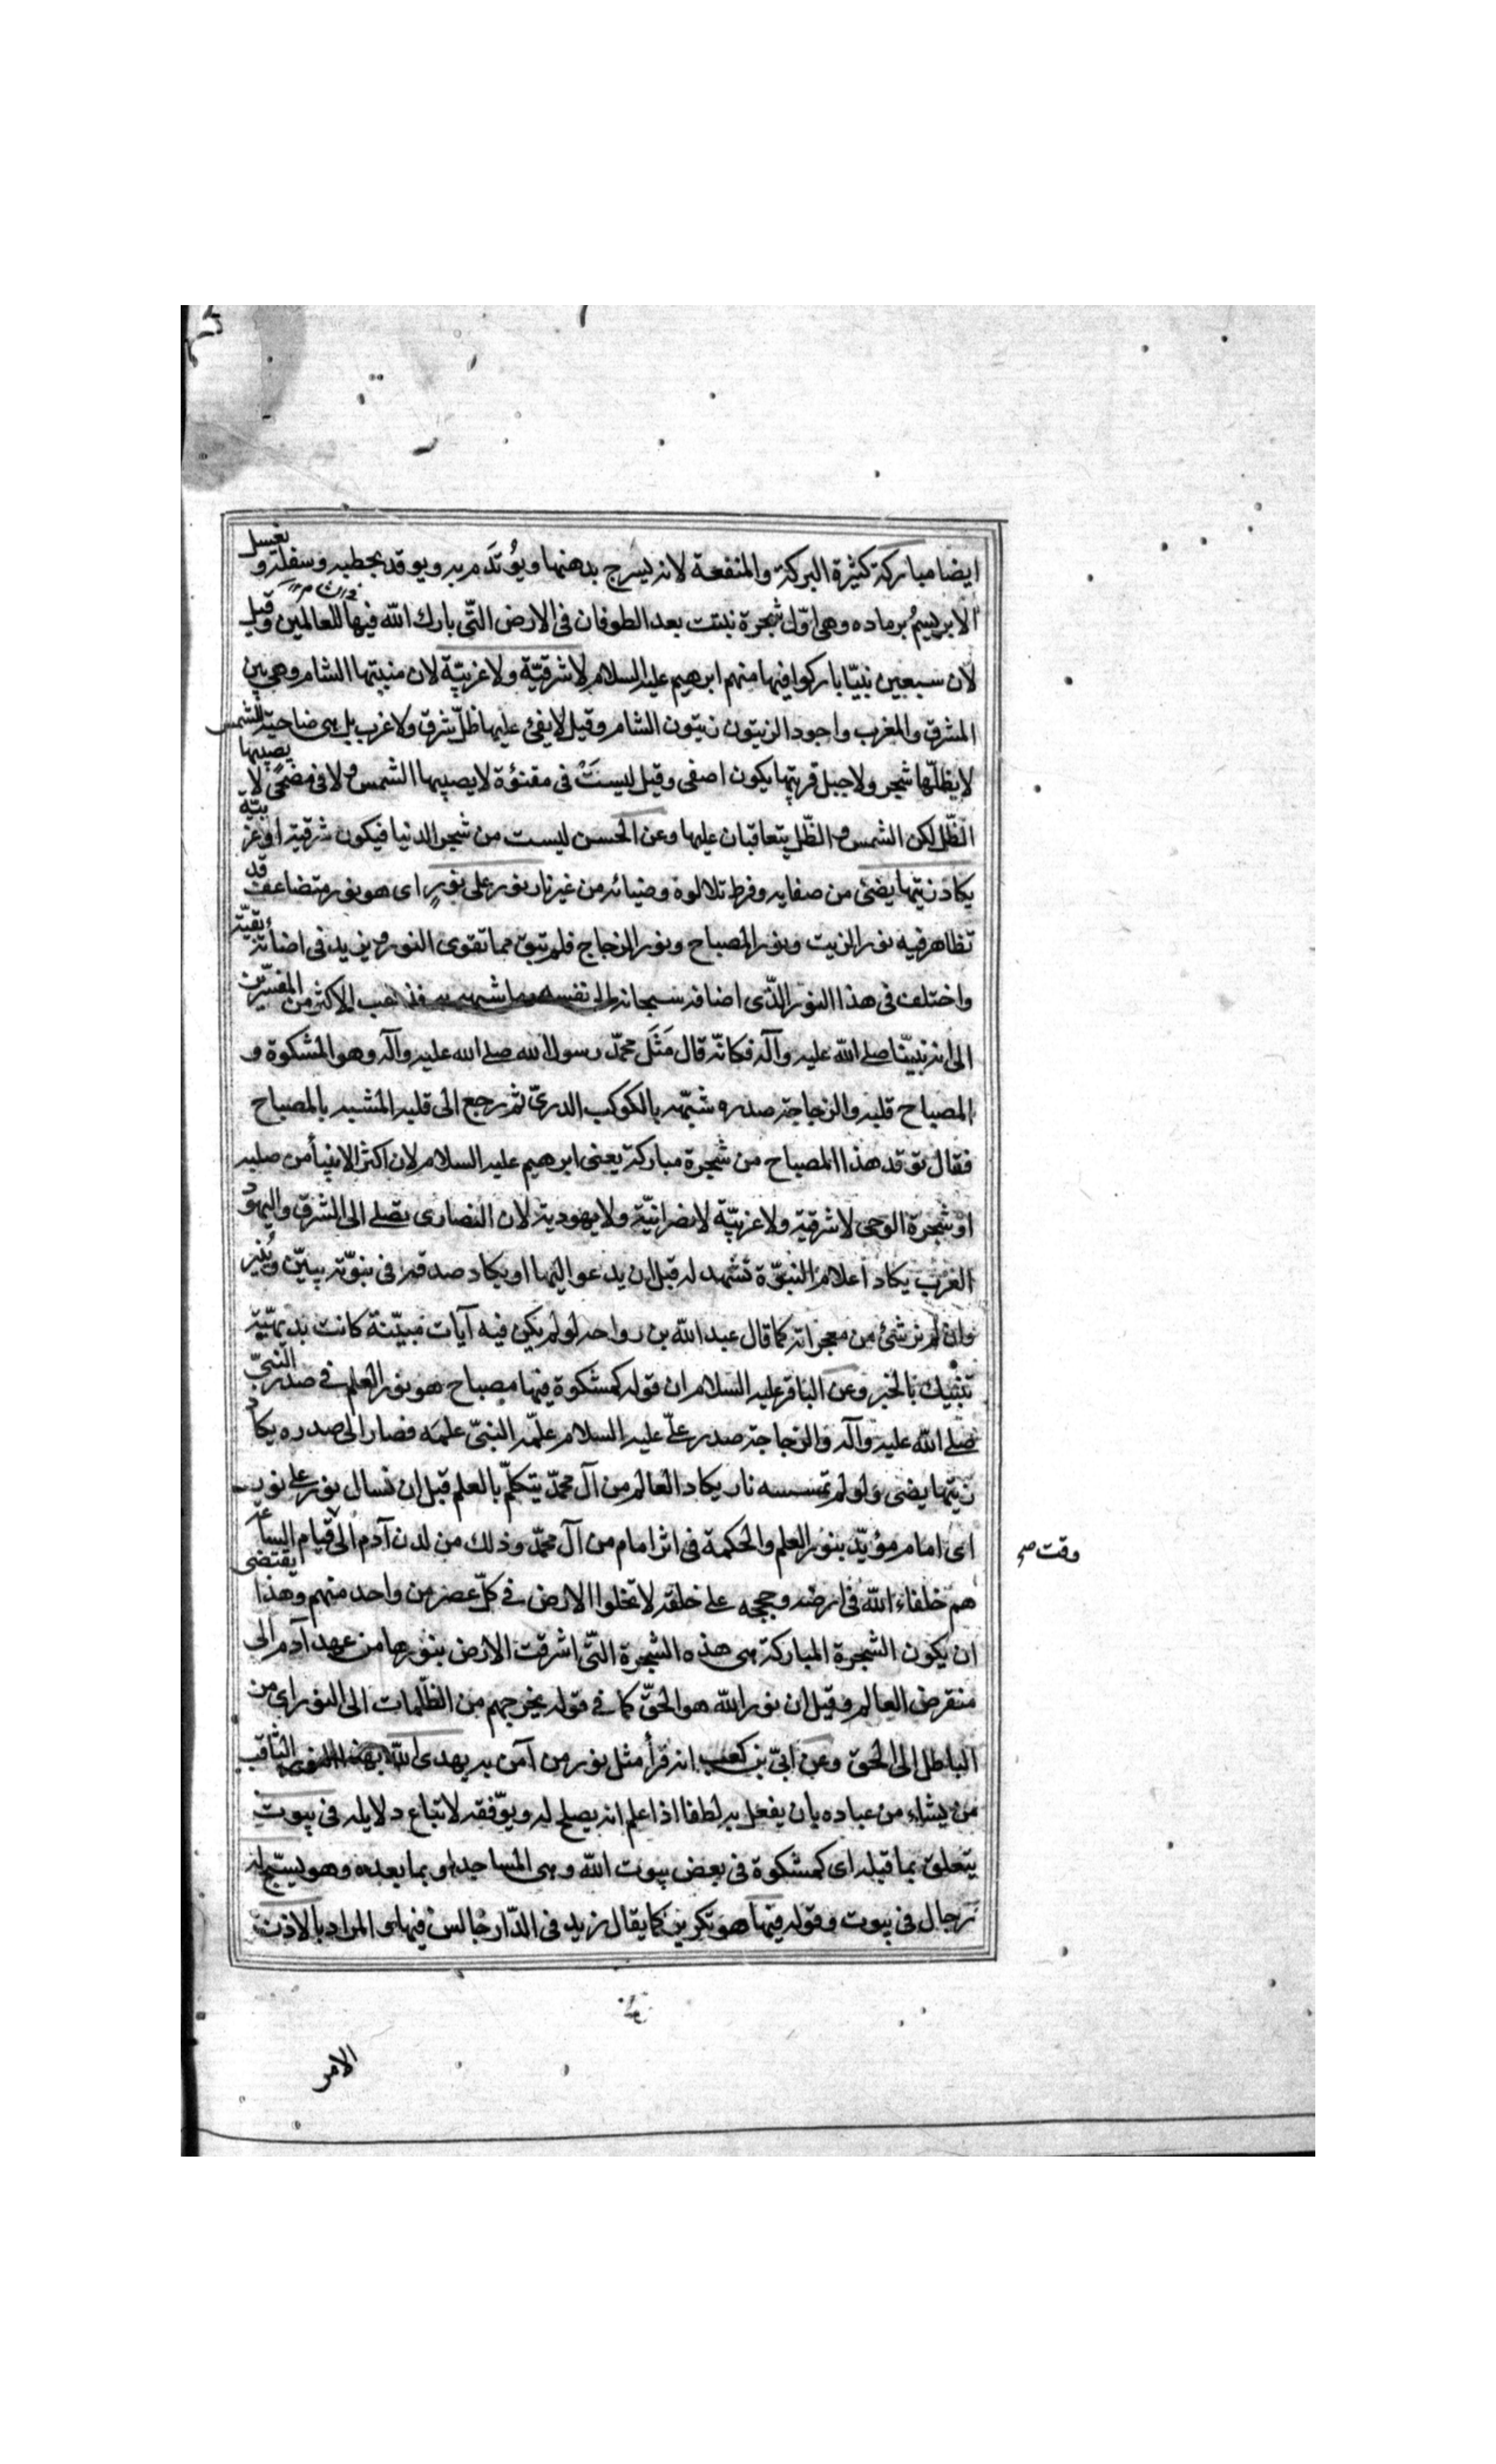 ايضا مباركة كثيرة البركة والمنفعة لانه يسرج بدهنها ويُؤتَدَم به ويوقد بحطبه وسفله ويغسل
الابريسمُ برماده وهى اوّل شجرة نبتت بعد الطوفان فى الارض التّى بارك الله فيها للعالمين وقيل
لان سبعين نبيّا باركوا فيها منهم ابرهيم عليه السلام لا شرقيّة ولا غربيّة لان منبتها الشام وهى بين
المشرق والمغرب واجود الزيتون زيتون الشام وقيل لا يفئ عليها ظلّ شرق ولا غرب بل هى ضاحية للشمس
لا يظلّها شجر ولا جبل فزيتها يكون اصفى وقيل ليسَتْ فى مقنؤة لا يصيبها الشمس ولا فى مضحًى لا يصيبها
الظّل لكن الشمس والظّل يتعاقبان عليها وعن الحسن ليست من شجر الدنيا فيكون شرقية او غربيّة
يكاد زيتها يضئ من صفايه وفرط تلالوه وضيائه من غير نار نور على نورٍ اى هو نور متضاعف قد
تظاهر فيه نور الزيت ونور المصباح ونور الزجاج فلم تبق مما تقوى النور ويزيد فى اضائته بقيّة
واختلف فى هذا النور الذّى اضافه سبحانه الى نفسه وما شبهه به فذهب الاكثر من المفسّرين
الى انه نبيّنا صلى الله عليه وآله فكانّه قال مَثَل محمّد رسول الله صلى الله عليه وآله وهو المشكوة و
المصباح قلبه والزجاجة صدره شبّهه بالكوكب الدرىّ ثم رجع الى قلبه المشبه بالمصباح
فقال توقد هذا المصباح من شجرة مباركة يعنى ابرهيم عليه السلام لان اكثر الانبيأ من صلبه
او شجرة الوحى لا شرقية ولا غربيّة لا نصرانيّة ولا يهودية لان النصارى تصلى الى المشرق واليهود
الغرب يكاد اعلام النبوّة تشهد له قبل ان يدعو اليها او يكاد صدقه فى نبوّته يبيّن ويُنير
وان لم نر شئ من معجزاته كما قال عبد الله بن رواحه لو لم يكن فيه آيات مبيّنة كانت بديهيّة
تنبيك بالخبر وعن الباقر عليه السلام ان قوله كمشكوة فيها مصباح هو نور العلم فى صدر النبىّ
صلى الله عليه وآله والزجاجة صدر علىّ عليه السلام علّمه النبىّ علمَه فصار الى صدره يكاد
زيتها يضى ولو لم تمسسه نار يكاد العالم من آل محمّد يتكلّم بالعلم قبل ان تسال نور على نور
اى امام مؤيّد بنور العلم والحكمة فى اثر امام من آل محمّد وذلك من لدن آدم الى قيام الساعة
وقت صح
هم خلفاء الله فى ارضه وحججه على خلقه لا تخلوا الارض فى كلّ عصر من واحد منهم وهذا يقتضى
ان يكون الشجرة المباركة هى هذه الشجرة التّى اشرقت الارض بنورها من عهد آدم الى
منقرض العالم وقيل ان نور الله هو الحقّ كما فى قوله يخرجهم من الظّلمات الى النور اى من
الباطل الى الحق وعن ابىّ بن كعب انه قرأ مثل نور من آمن به يهدى الله بهذا النور الثّاقب
من يشاء من عباده بان يفعل به لطفا اذا علم انه يصلح له ويوّفقه لاتباع دلايله فى بيوت
يتعلق بما قبله اى كمشكوة فى بعض بيوت الله وهى المساجد او بما بعده وهو يسبّح له
رجال فى بيوت وقوله فيها هو تكرير كما يقال زيد فى الدّار جالس فيها والمراد بالاذن
الامر